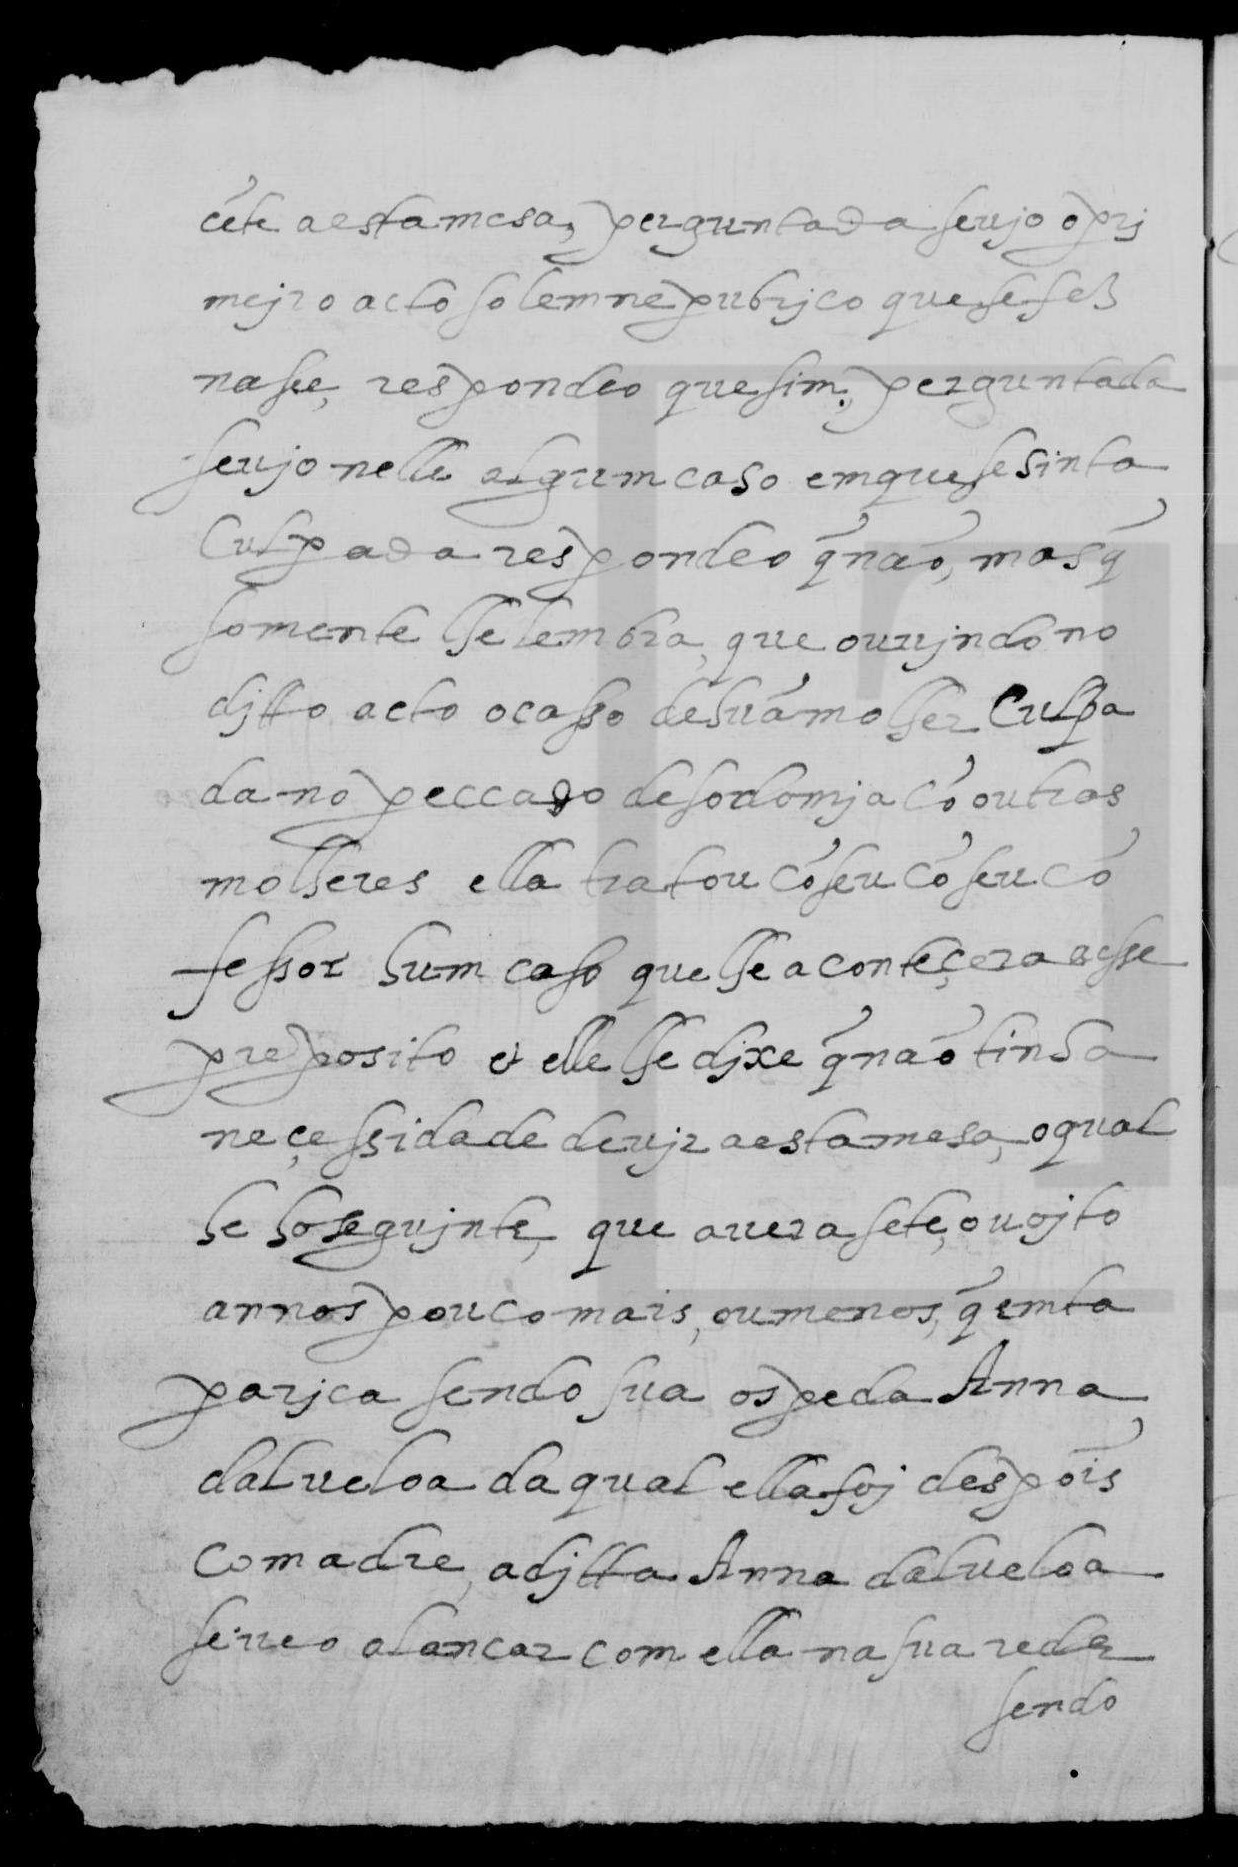 cẽte a esta mesa, perguntada se vjo o prj
mejro acto solemne pubrjco que se fez
na see, respondeo que sim, perguntada
se vjo nelle algum caso em que se sinta
culpada respondeo q̃ não, mas q̃
somente lhe lembra, que ouvjndo no
djtto acto o casso de hũa molher culpa
da no peccado de sodomja cõ outras
molheres ella tratou cõ seu cõ seu cõ
fessor hum caso que lhe aconteçera a esse
preposito & elle lhe djxe q̃ não tinha
neçessidade de vjr a esta mesa, o qual
he ho segujnte, que avera sete, ou ojto
annos pouco mais, ou menos, q̃ em ta
parjca sendo sua ospeda Anna
dalveloa da qual ella foj despois
comadre, a djtta Anna dalveloa
se veo a lançar com ella na sua rede
sendo